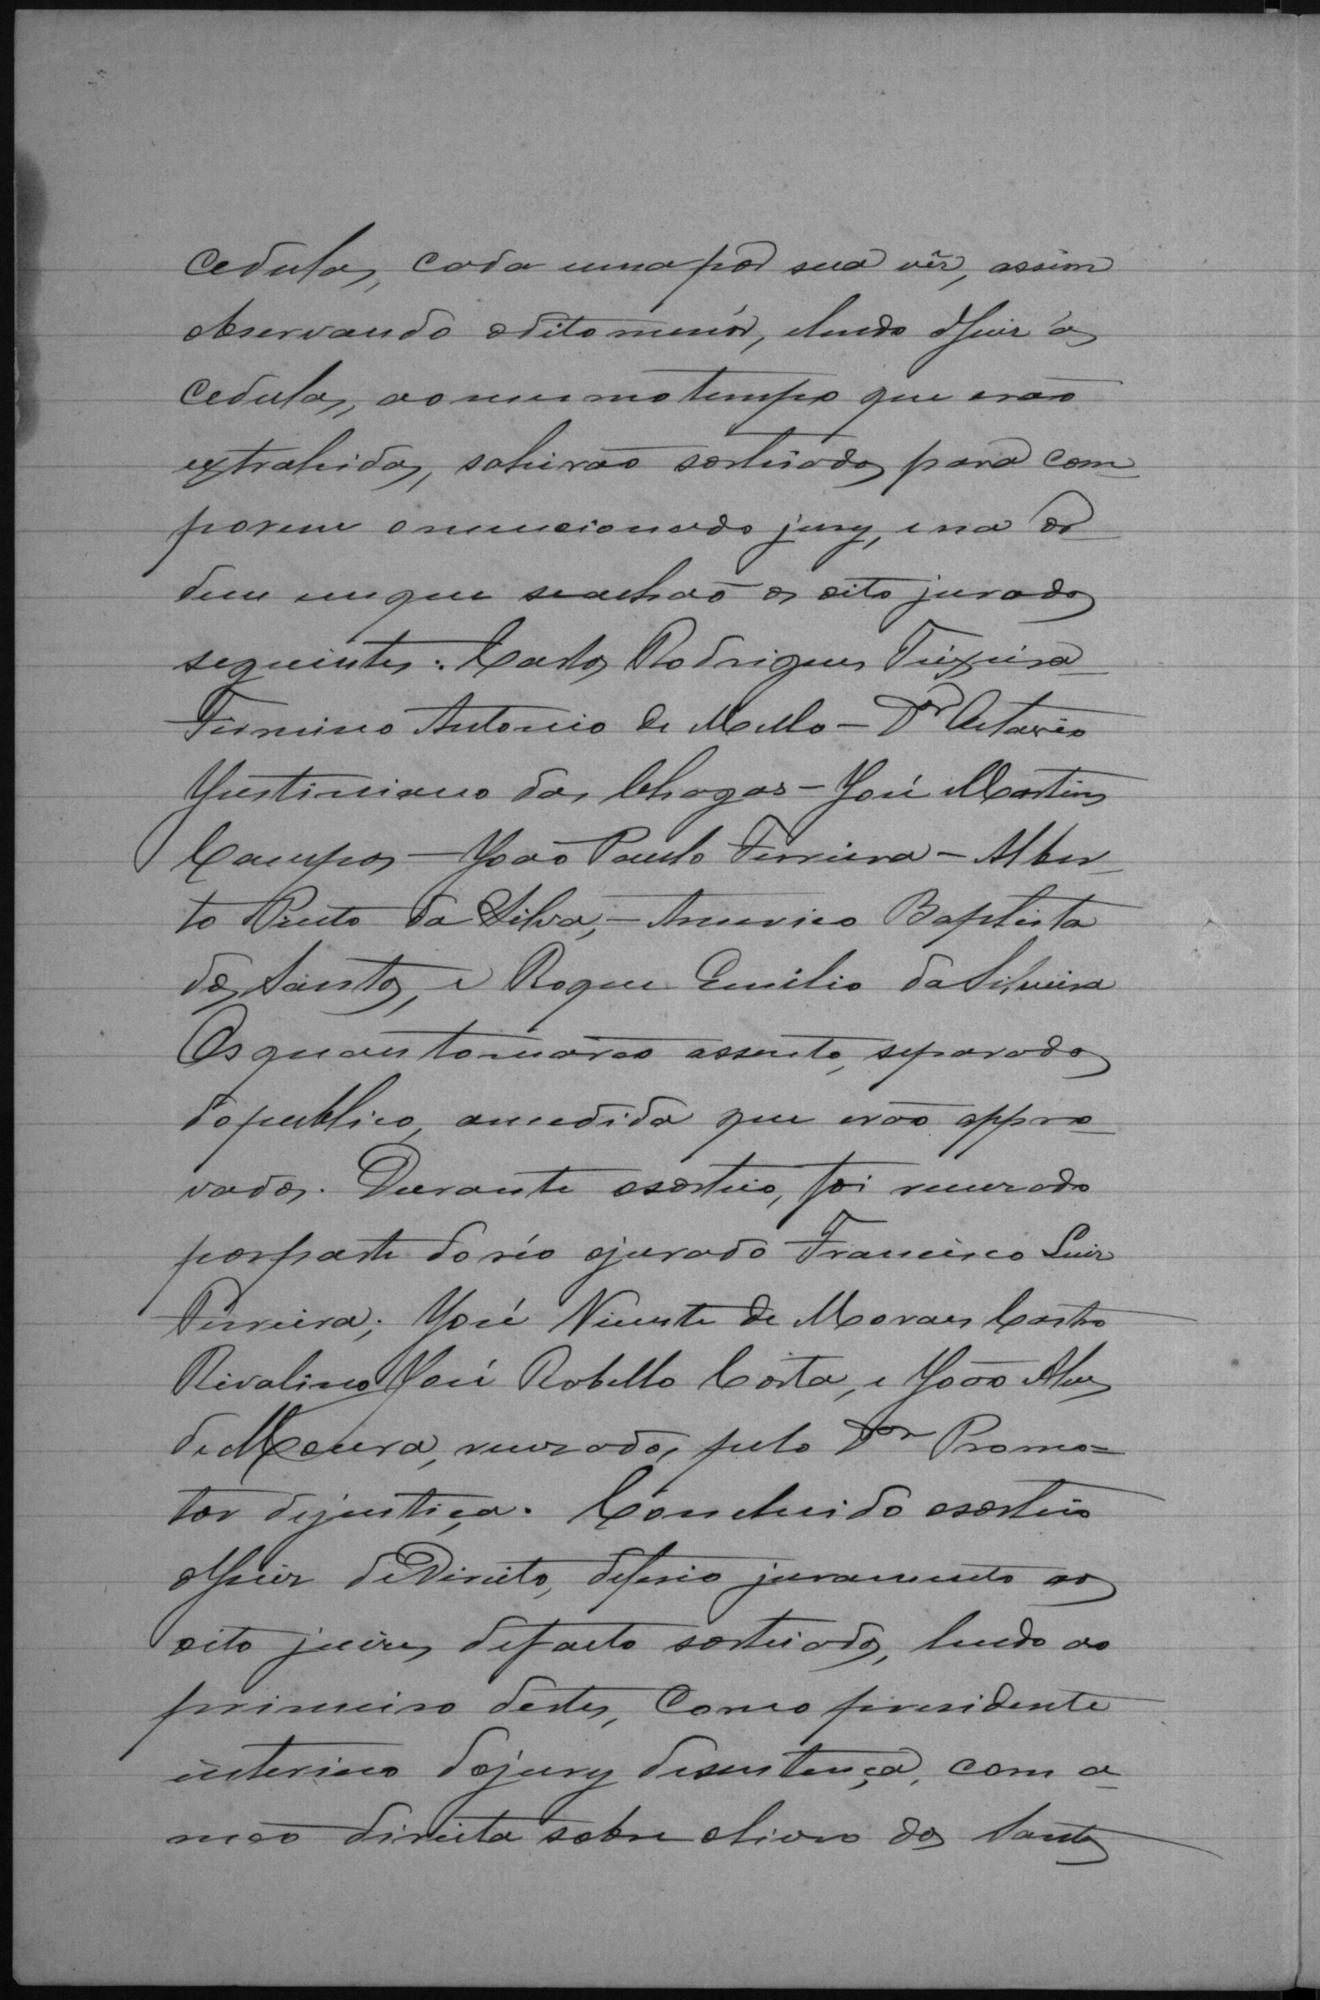 cedulas, cada uma por sua vêz, assim
observando o dito menór, e lendo o Juiz ás
cedulas, ao mesmo tempo que erão
extrahidas, sahirão sorteiados para com-
porem o mencionado jury, e na or-
dem em que se achão os oito jurados
seguintes: Carlos Rodrigues Teixeira -
Firmino Antonio de Mello - Dor Octavio
Justiniano das Chagas - José Martins
Campos - João Paulo Ferreira - Alber-
to Pinto da Silva, - Americo Baptista
dos Santos, e Roque Emilio da Silveira
Os quaes tomárão assento, separados
do publico, a medida que erão appro-
vados. Durante o sorteio, foi recuzado
por parte do réo o jurado Francisco Luiz
Pereira; José Vicente de Moraes Castro
Rivalino José Rabello Costa, e João Alves
de Moura, recuzados pelo Dor Promo-
tor de justiça. Concluido o sorteio
o Juiz de Direito, deferio juramento aos
oito juizes de facto sorteiados, lendo ao
primeiro destes, como presidente
interino do jury de sentença, com a
mão direita sobre o livro dos Santos